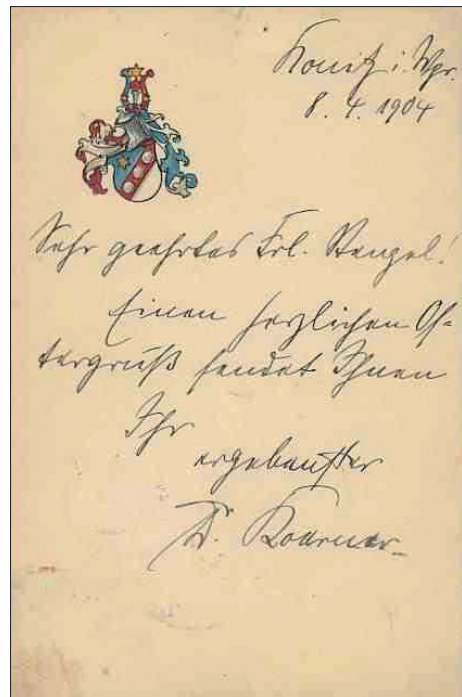 Konitz i. Wpr.
8. 4. 1904
Sehr geehrtes Frl. Stenzel!
Einen herzlichen Os-
tergruß sendet Ihnen
Ihr
ergebenster
Dr. Koerner